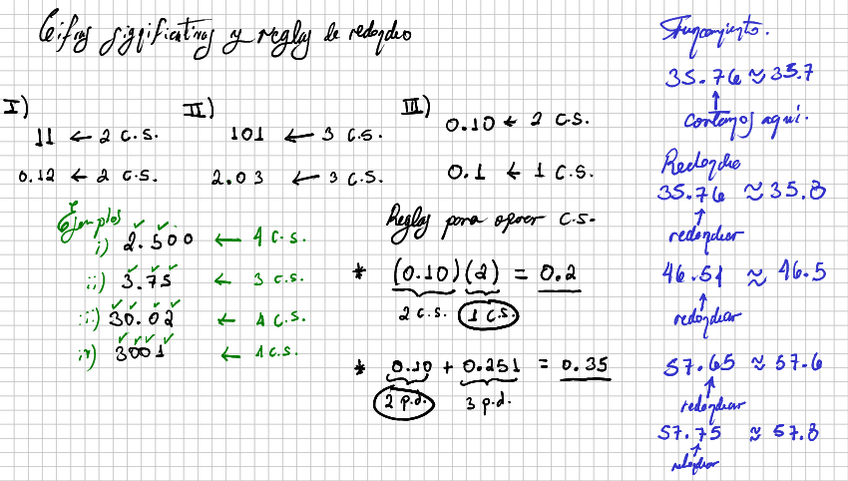 Cifras significativas y reglas de redondeo
I)
11 ← 2 c.s.
0.12 ← 2 c.s.
II)
101 ← 3 c.s.
2.03 ← 3 c.s.
III)
0.10 ← 2 c.s.
0.1 ← 1 c.s.
Ejemplos
i) 2.500 ← 4 c.s.
ii) 3.75 ← 3 c.s.
iii) 30.02 ← 4 c.s.
iv) 3001 ← 4 c.s.
Reglas para operar c.s.
* (0.10)(2) = 0.2
2 c.s. 1 c.s.
* 0.10 + 0.251 = 0.35
2 p.d. 3 p.d.
Truncamiento.
35.76 ≈ 35.7
↑
cortamos aquí.
Redondeo
35.76 ≈ 35.8
↑
redondear
46.51 ≈ 46.5
↑
redondear
57.65 ≈ 57.6
↑
redondear
57.75 ≈ 57.8
↑
redondear